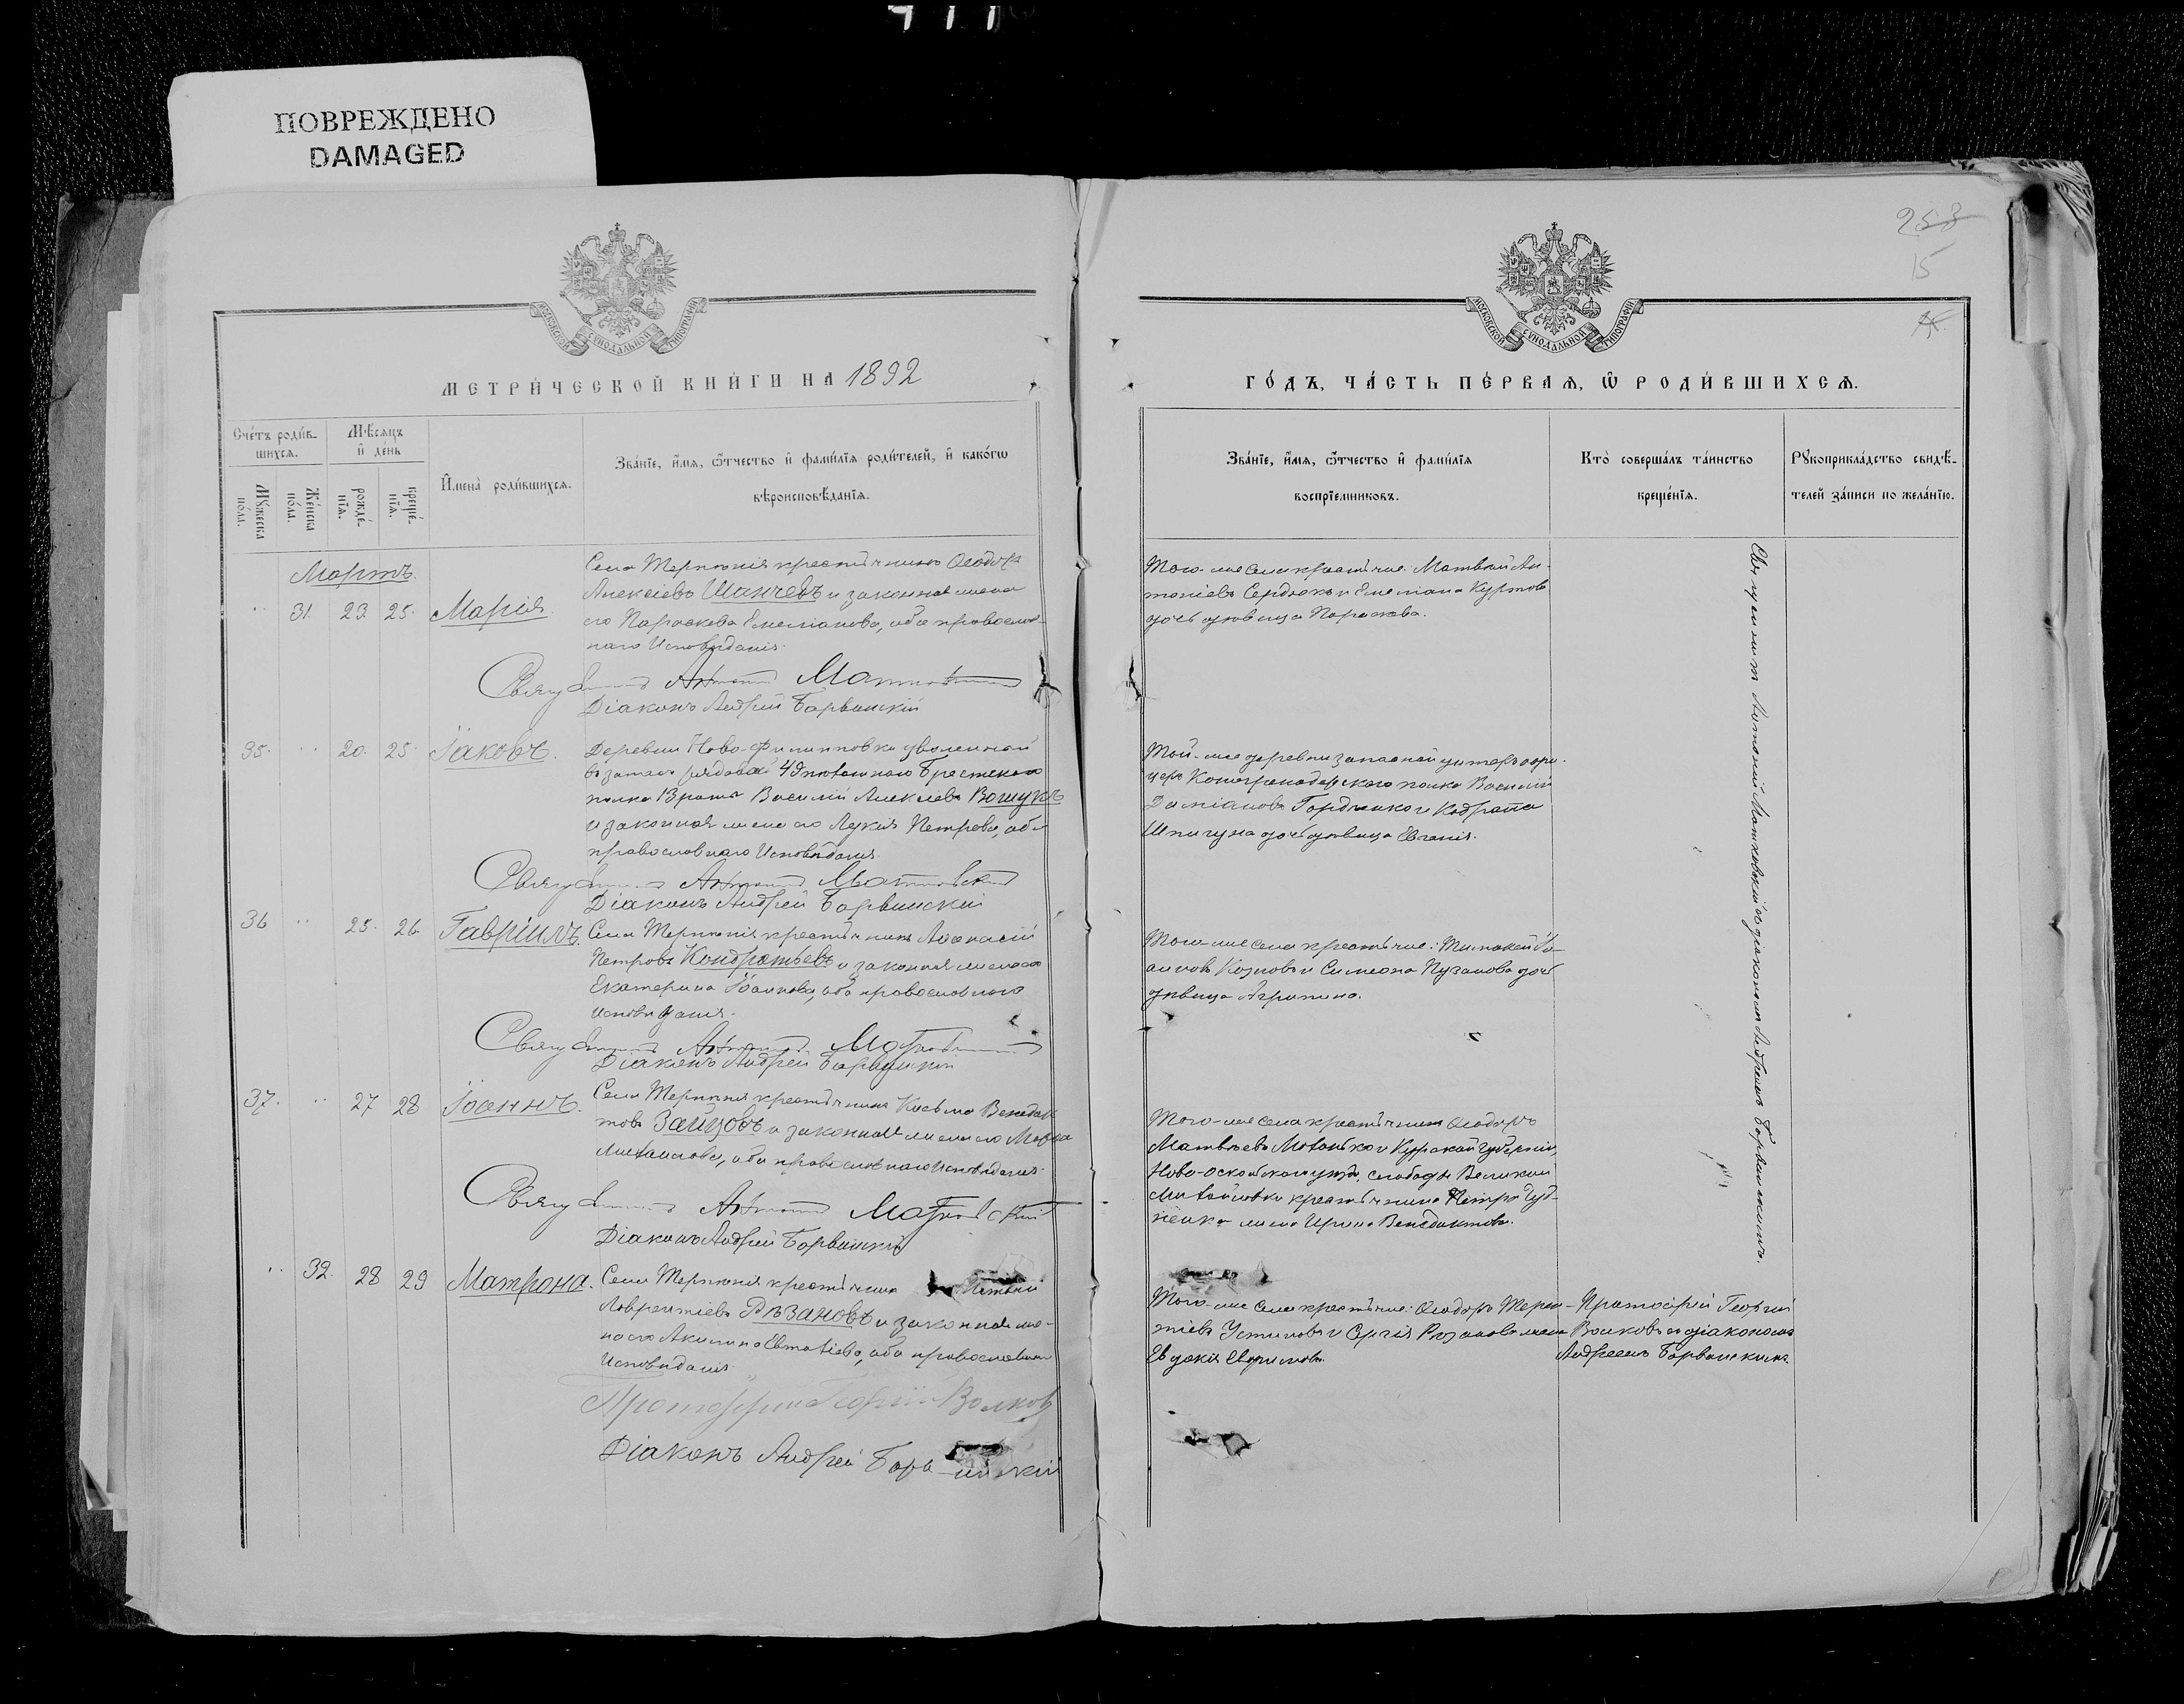 ПОВРЕЖДЕНО
DAMAGED
253
15
МОСКОВСКОЙ СѴНОДАЛЬНОЙ ТИПОГРАФІИ
МОСКОВСКОЙ СѴНОДАЛЬНОЙ ТИПОГРАФІИ
МЕТРИ́ЧЕСКОЙ КНИ́ГИ НА 1892
ГО́ДЪ, ЧА́СТЬ ПЕ́РВАЯ, Ѿ РОДИ́ВШИХСЯ.
Сче́тъ роди́в-
шихся.
Мѣ́сяцъ
и҆ де́нь
Мꙋ́жеска
по́ла.
Же́нска
по́ла.
рожде́-
нїя.
креще́-
нїя.
И҆мена̀ роди́вшихся.
Зва́нїе, и҆́мя, ѻ҆́тчество и҆ фами́лїя роди́телей, и҆ како́гѡ
вѣроисповѣ́данїя.
Зва́нїе, и҆́мя, ѻ҆́тчество и҆ фами́лїя
воспрїе́мниковъ.
Кто̀ соверша́лъ та́инство
креще́нїя.
Рꙋкоприкла́дство свидѣ́-
телей за́писи по жела́нїю.
Мартъ.
" 31. 23. 25. Марія.
Села Терпѣнія крестьянинъ Ѳеодоръ
Алексіевъ Шанчевъ и законная жена
его Параскева Емеліанова, оба православ-
наго Исповѣданія.
Священникъ Антоній Матковскій
Діаконъ Андрей Барвинскій
Того-же села крестьяне: Матвѣй Ан-
тоніевъ Сердюкъ и Емеліана Куртова
дочь дѣвица Параскева.
35. " 20. 25. Іаковъ.
Деревни Ново-Филипповки уволенный
въ запасъ рядовой 49 пѣхотнаго Брестскаго
полка Василій Алексіевъ Вошукъ
и законная жена его Лукія Петрова, оба
православнаго Исповѣданія.
Священникъ Антоній Матковскій
Діаконъ Андрей Барвинскій
Той-же деревни запасной унтеръ офи-
церъ полка Василій
Даміановъ Гордіенко и Кодрата
Шпигуна дочь дѣвица Евгенія.
36 " 25. 26. Гавріилъ.
Села Терпѣнія крестьянинъ Аѳанасій
Петровъ Кондратьевъ и законная жена его
Екатерина Іоаннова, оба православнаго
Исповѣданія.
Священникъ Антоній Матковскій
Діаконъ Андрей Барвинскій
Того-же села крестьяне: Тимоѳей Іо-
анновъ Козловъ и Симеона Пузанова дочь
дѣвица Агрипина.
37. " 27 28 Іоаннъ.
Села Терпѣнія крестьянинъ Косьма Венедик-
товъ Зайцовъ и законная жена его Марѳа
Михаилова, оба православнаго Исповѣданія.
Священникъ Антоній Матковскій
Діаконъ Андрей Барвинскій
Того-же села крестьянинъ Ѳеодоръ
Матвѣевъ и Курской губерніи,
Ново-оскольскаго уѣзда, слободы Великой
Михайловки крестьянина Петра Гуд-
жена Ирина Венедиктова.
Священникъ Антоній Матковскій съ діакономъ Андреемъ Барвинскимъ.
" 32. 28 29 Матрона.
Села Терпѣнія крестьянинъ
Лаврентіевъ Рѣзановъ и законная же-
на его Акилина Евтихіева, оба православнаго
Исповѣданія
Протоіерей Георгій Волковъ
Діаконъ Андрей Барвинскій
Того-же села крестьяне: Ѳеодоръ Терен-
тіевъ Устиновъ и Сергія Рѣзанова жена
Евдокія
Протоіерей Георгій
Волковъ съ діакономъ
Андреемъ Барвинскимъ.